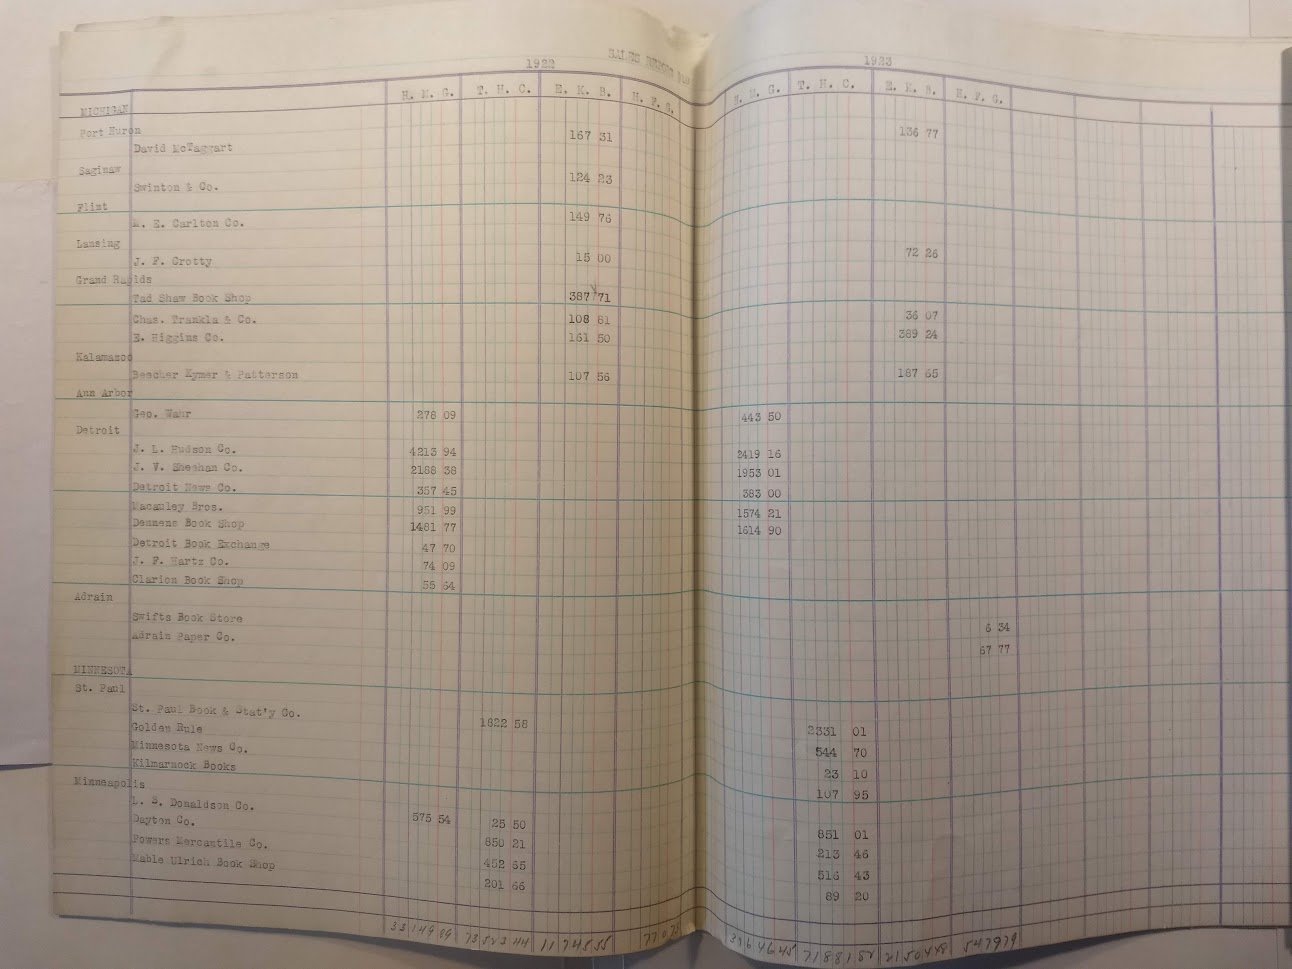 1922 SALES 1923
H. M. G. T. H. C. E. K. B. H. F. G. H. M. G. T. H. C. E. K. B. H. F. G.
MICHIGAN
Port Huron
David McTaggart 167 31 136 77
Saginaw
Swinton & Co. 124 23
Flint
M. E. Carlton Co. 149 76
Lansing
J. F. Crotty 15 00 72 26
Grand Rapids
Tad Shaw Book Shop 387 71
Chas. Trankla & Co. 108 81 36 07
E. Higgins Co. 161 50 389 24
Kalamazoo
Beecher Kymer & Patterson 107 56 187 65
Ann Arbor
Geo. Wahr 278 09 443 50
Detroit
J. L. Hudson Co. 4213 94 2419 16
J. V. Sheehan Co. 2188 38 1953 01
Detroit News Co. 357 45 383 00
Macauley Bros. 951 99 1574 21
Dennens Book Shop 1481 77 1614 90
Detroit Book Exchange 47 70
J. F. Hartz Co. 74 09
Clarion Book Shop 55 64
Adrain
Swifts Book Store 6 34
Adrain Paper Co. 67 77
MINNESOTA
St. Paul
St. Paul Book & Stat'y Co. 1822 58 2331 01
Golden Rule 544 70
Minnesota News Co. 23 10
Kilmarnock Books 107 95
Minneapolis
L. S. Donaldson Co. 575 54 25 50 851 01
Dayton Co. 850 21 213 46
Powers Mercantile Co. 452 65 516 43
Mable Ulrich Book Shop 201 66 89 20
33149 89 73523 44 11748 55 71881 82 21504 48 5479 79